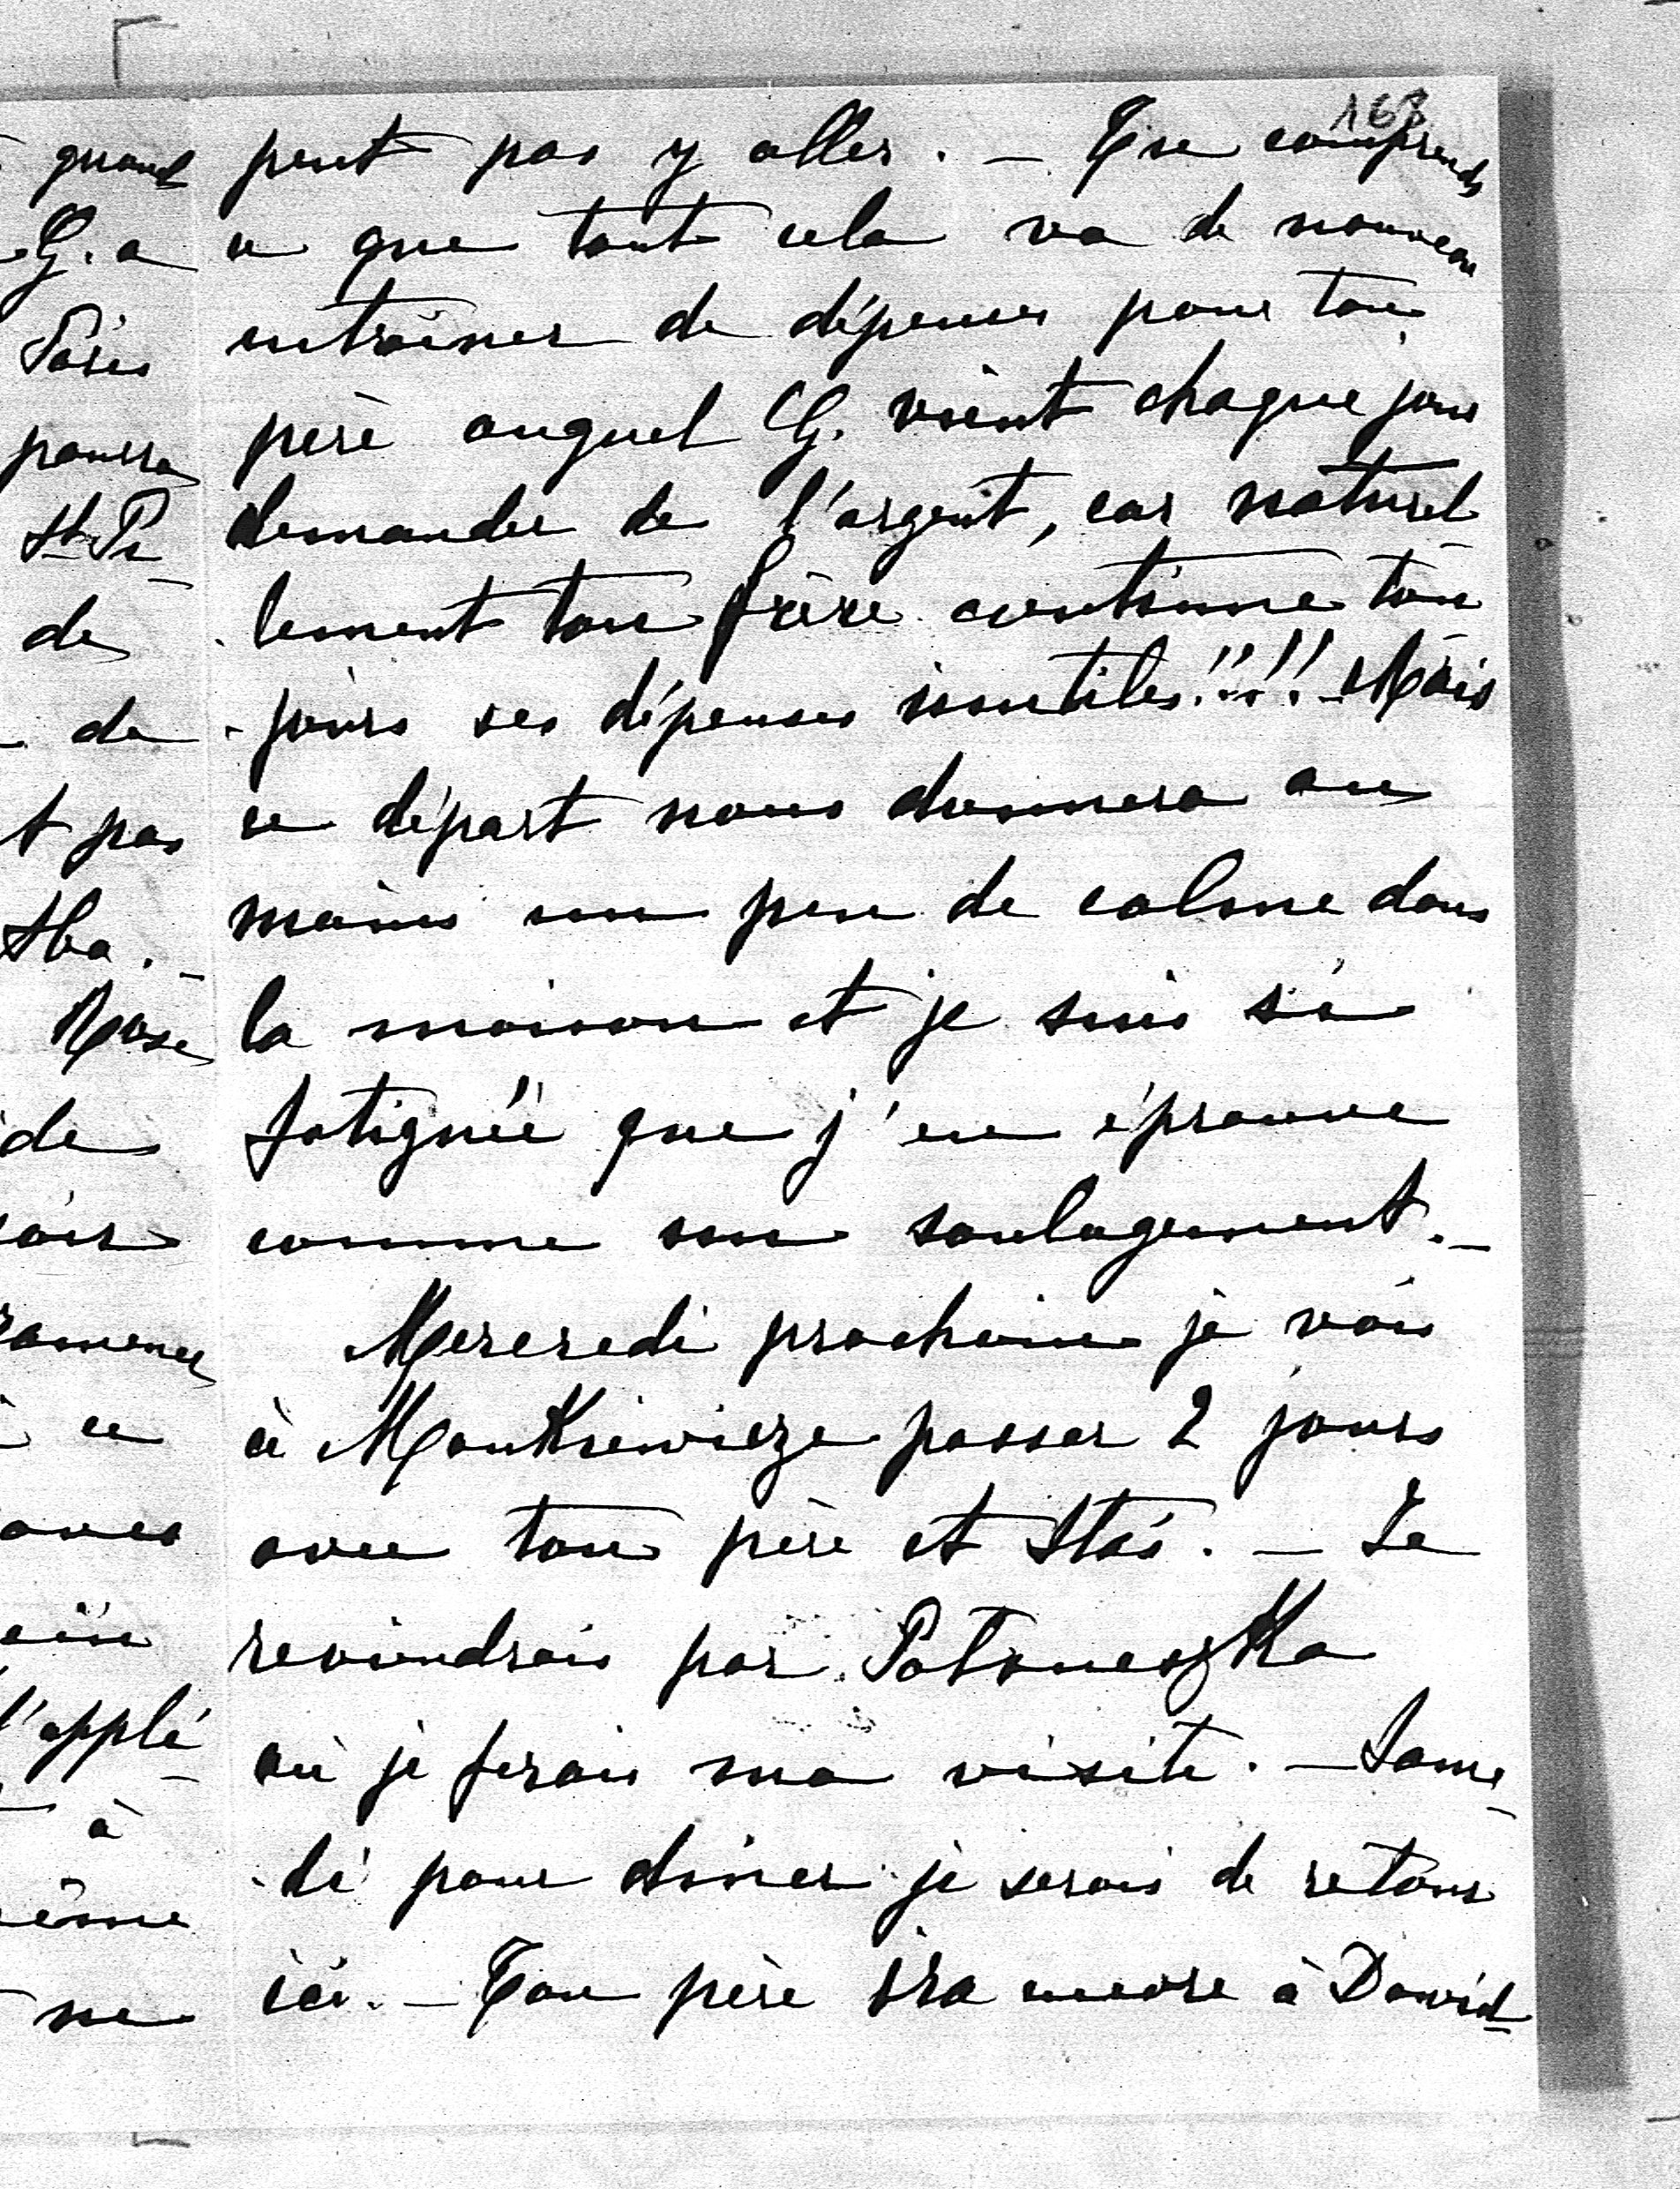 168
peut pas y aller. — Tu comprends
ce que tout cela va de nouveau
entraîner de dépenses pour ton
père auquel G. vient chaque jour
demander de l'argent, car naturel
lement ton frère continue tou
-jours ses dépenses inutiles!!!! — Mais
ce départ nous donnera au
moins un peu de calme dans
la maison et je suis si
fatiguée que j'en éprouve
comme un soulagement. —
Mercredi prochain je vais
à Mankiewicze passer 2 jours
avec ton père et Staś. — Je
reviendrais par
où je ferais ma visite. — Same
-di pour diner je serais de retour
ici. — Ton père ira encore à Dawid-
quand
G. a
Paris
pourra
St Pé
de
de
t pas
Rose
de
ce
avec
l'applé
à
ne